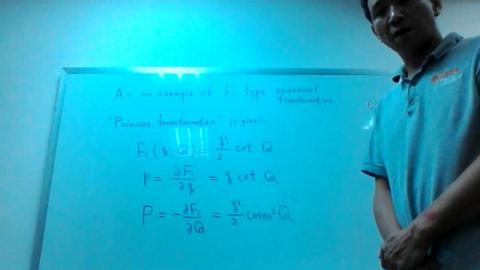 As an example of F₁ type canonical transformation
"Poincare transformation" is given.
F₁(q, Q) = q²/2 cot Q
p = ∂F₁/∂q = q cot Q
P = -∂F₁/∂Q = q²/2 cosec² Q